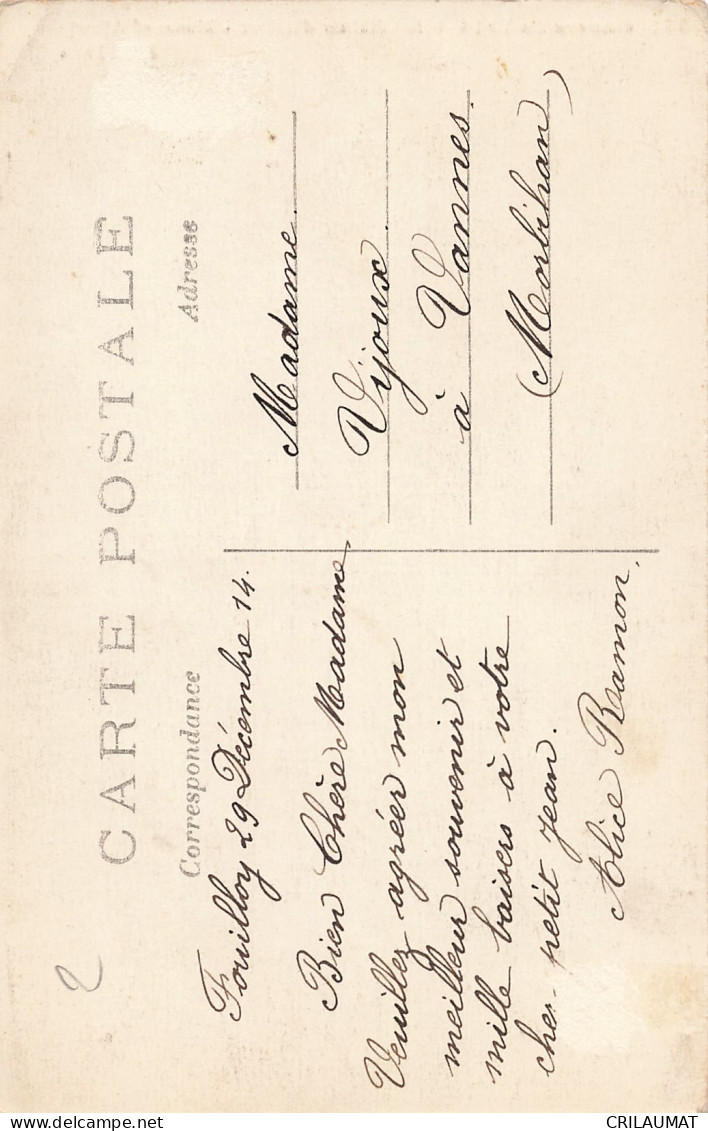 CARTE POSTALE
Correspondance
Adresse
Fouilloy 29 Décembre 14.
Bien Chère Madame,
Veuillez agréer mon
meilleur souvenir et
mille baisers à votre
cher petit Jean.
Alice Ramon.
Madame.
Vijoux.
à Vannes.
(Morbihan)
2
CRILAUMAT